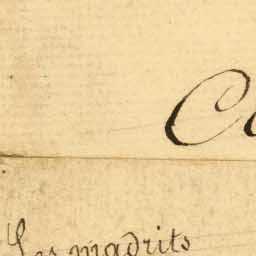 Co
Les madrits